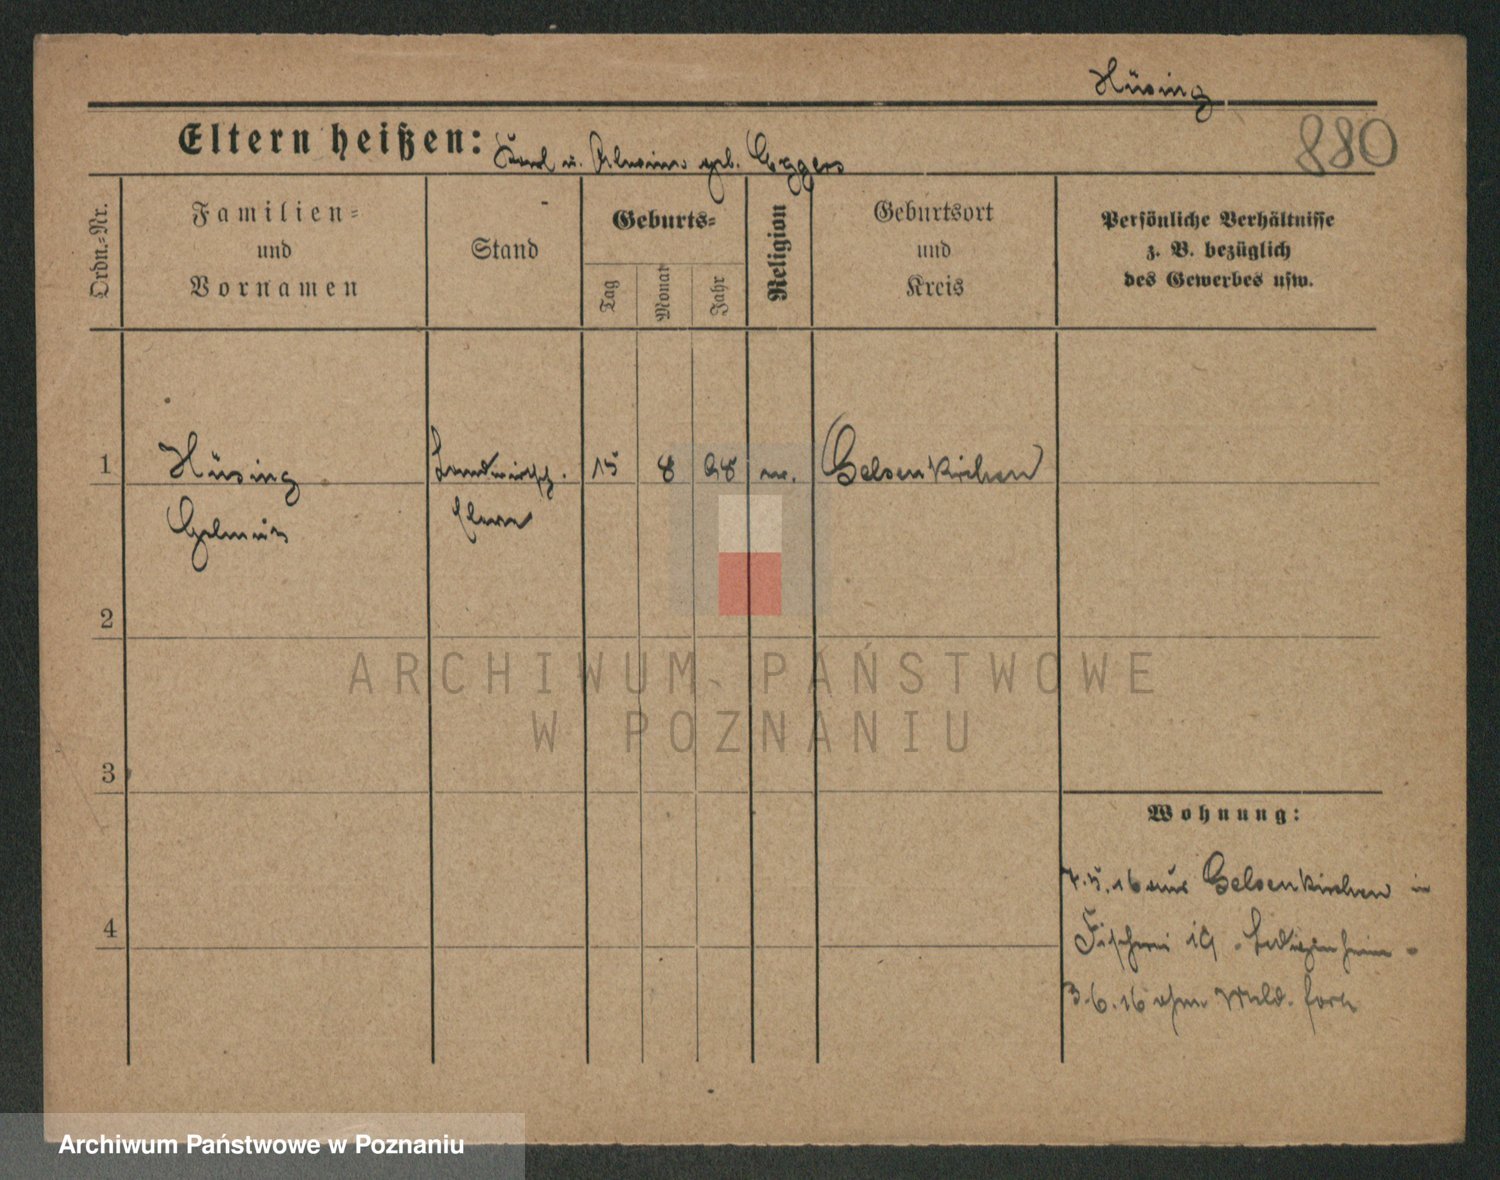 Hüsing
880
Eltern heißen: Karl u. Alwine geb. Eggers
Ordn.-Nr.
Familien-
und
Vornamen
Stand
Geburts-
Tag
Monat
Jahr
Religion
Geburtsort
und
Kreis
Persönliche Verhältnisse
z. B. bezüglich
des Gewerbes usw.
1
Hüsing
Landwirtsch.
15
8
98
ev.
Gelsenkirchen
Helmut
Eleve
2
ARCHIWUM PAŃSTWOWE
W POZNANIU
3
Wohnung:
7.5.16 aus Gelsenkirchen in
4
Fischerei 19
3.6.16 ohne Meld. fort
Archiwum Państwowe w Poznaniu